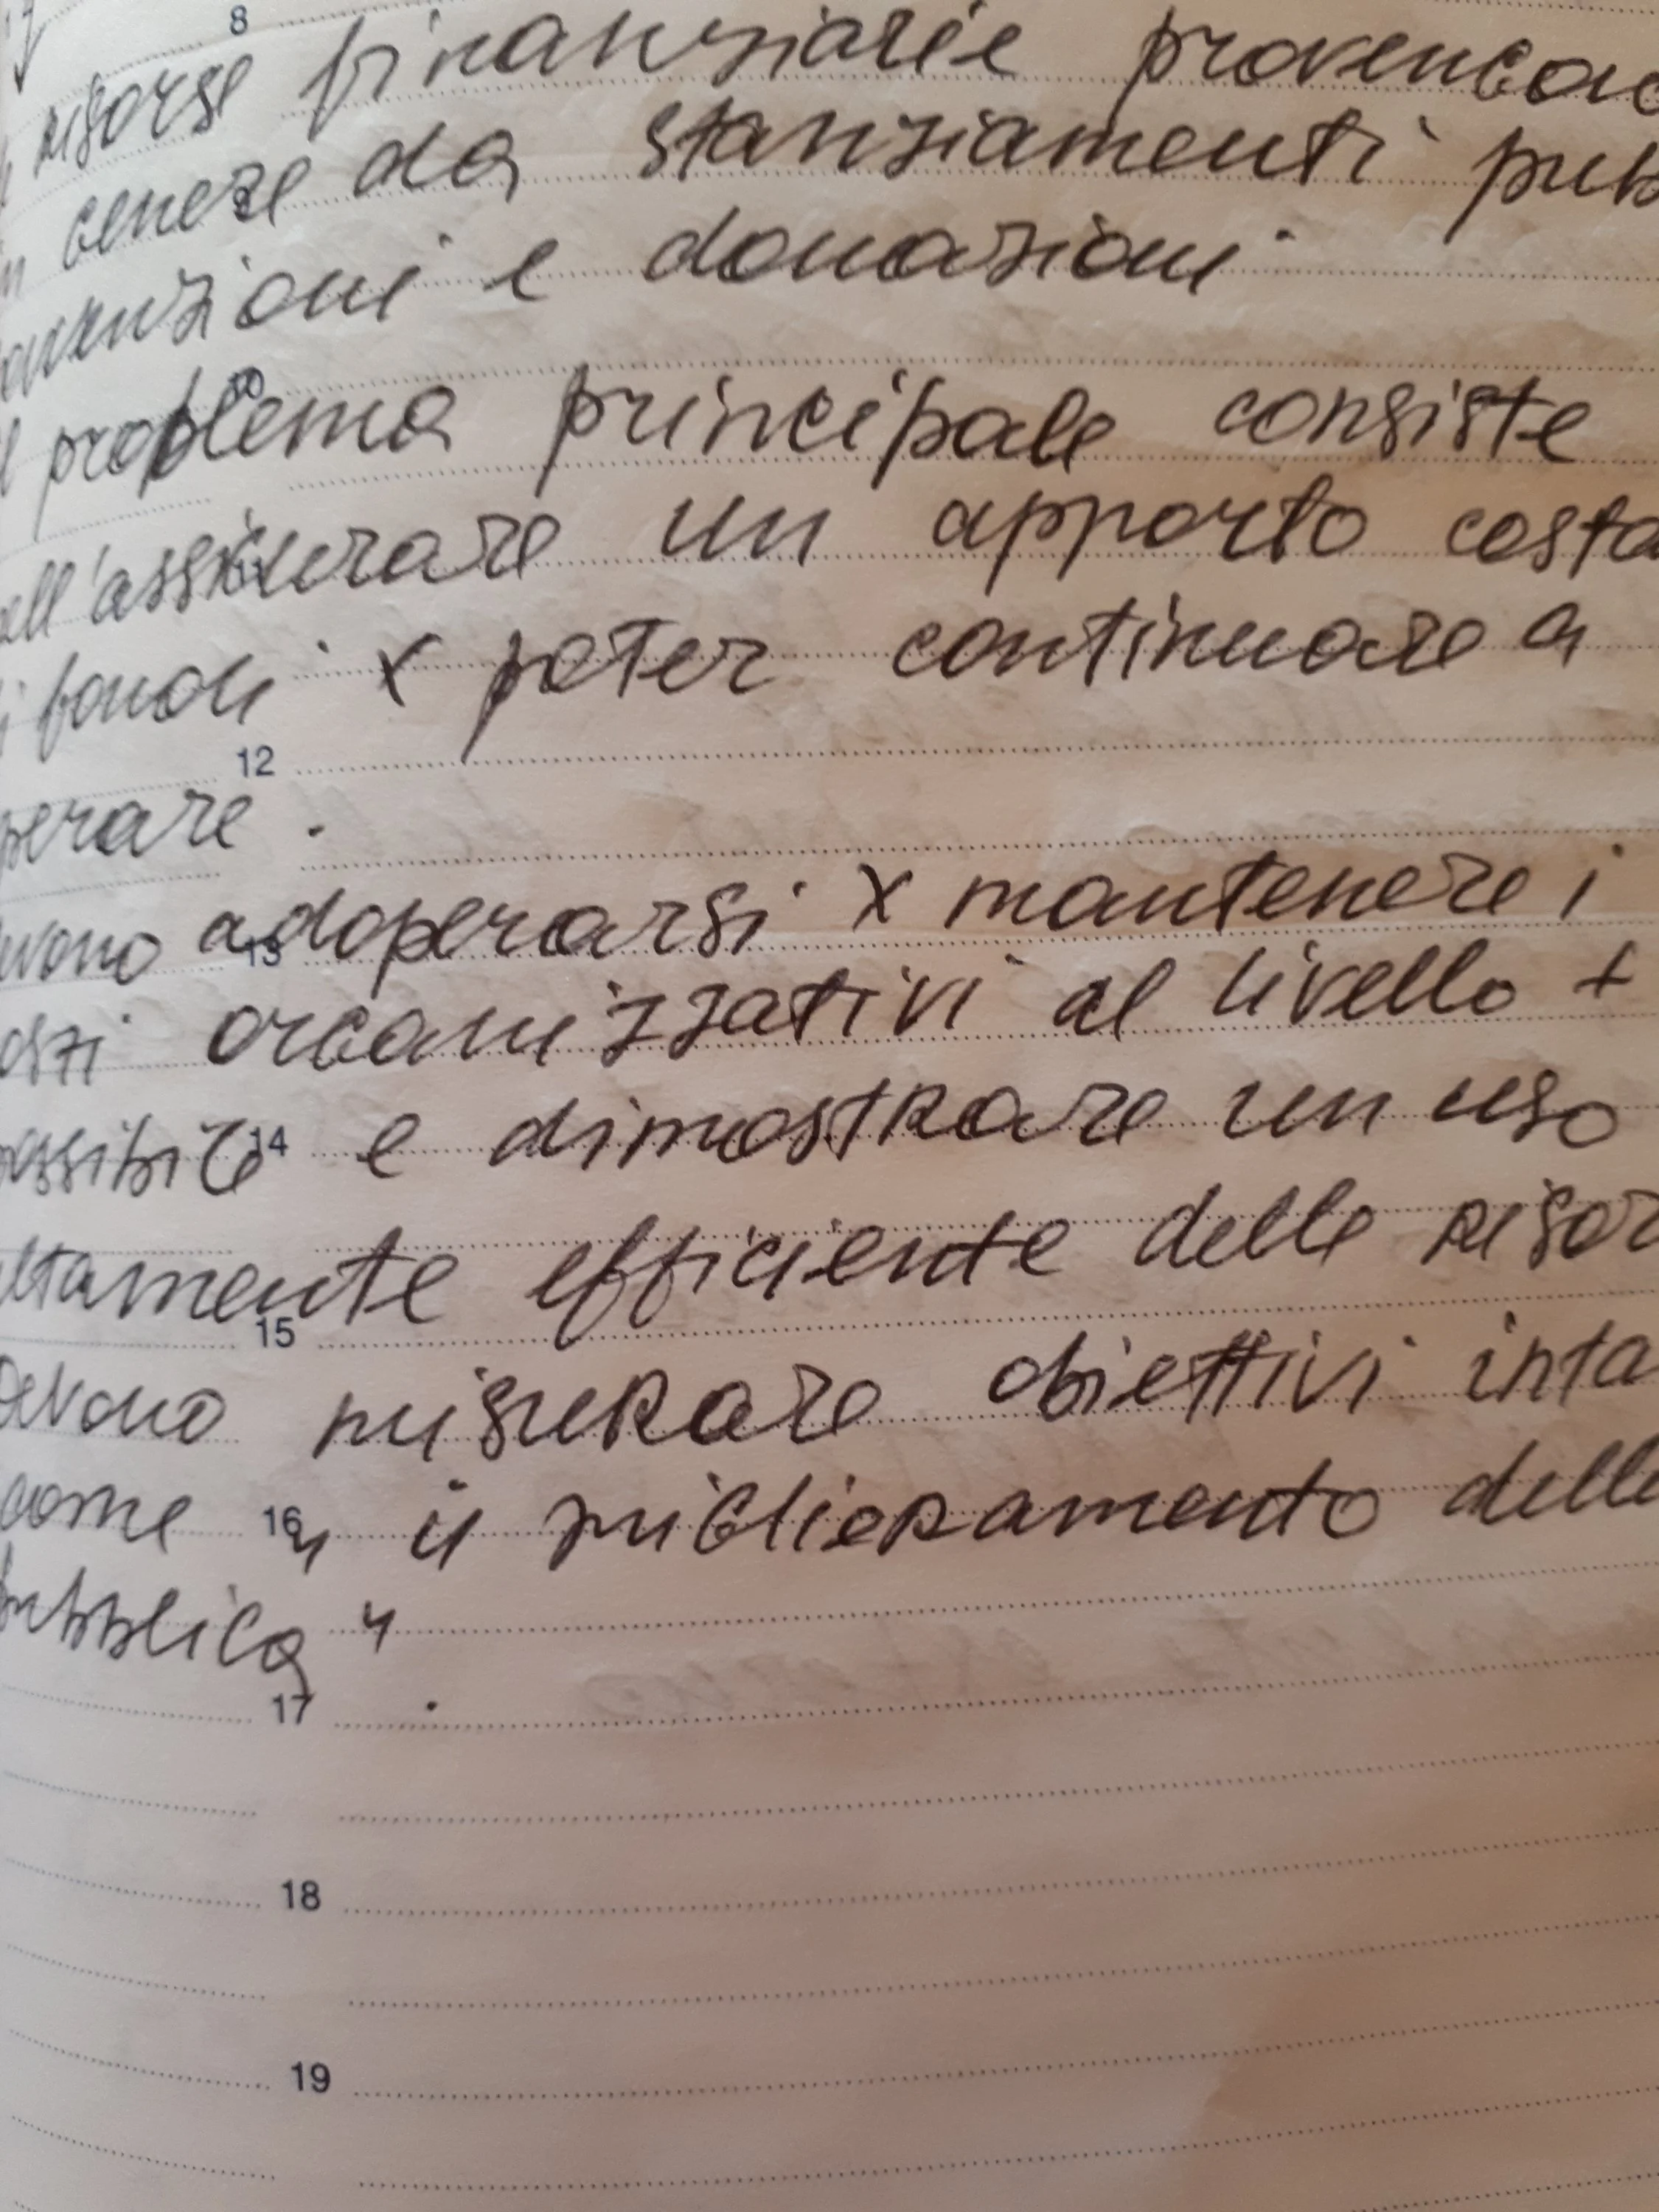 8
risorse finanziarie provengono
genere da stanziamenti pubb
ovvenzioni e donazioni.
problema principale consiste
ell'assicurare un apporto costa
i fondi x poter continuare a
12
perare.
adoperarsi x mantenere i
13
osti organizzativi al livello +
ossibile e dimostrare un uso
14
ltamente efficiente delle risor
15
evono misurare obiettivi inta
come " il miglioramento delle
16
pubblica "
17
.
18
19